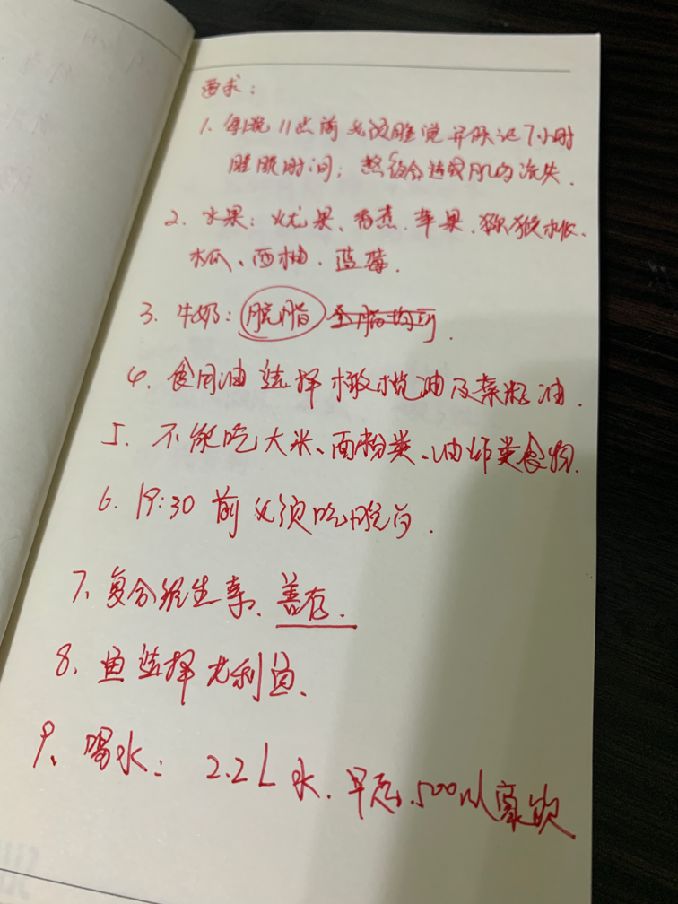 要求：
1、每晚11点前必须睡觉并保证7小时
睡眠时间；熬夜会造成肌肉流失.
2、水果：火龙果、香蕉.苹果.猕猴桃、
木瓜、西柚.蓝莓.
3、牛奶：脱脂
4、食用油选择橄榄油及菜籽油.
5、不能吃大米、面粉类、油炸类食物.
6、19:30前必须吃晚
7、复合维生素、善存.
8、鱼选择龙利鱼、
9、喝水：2.2L水.早起.500以豪饮